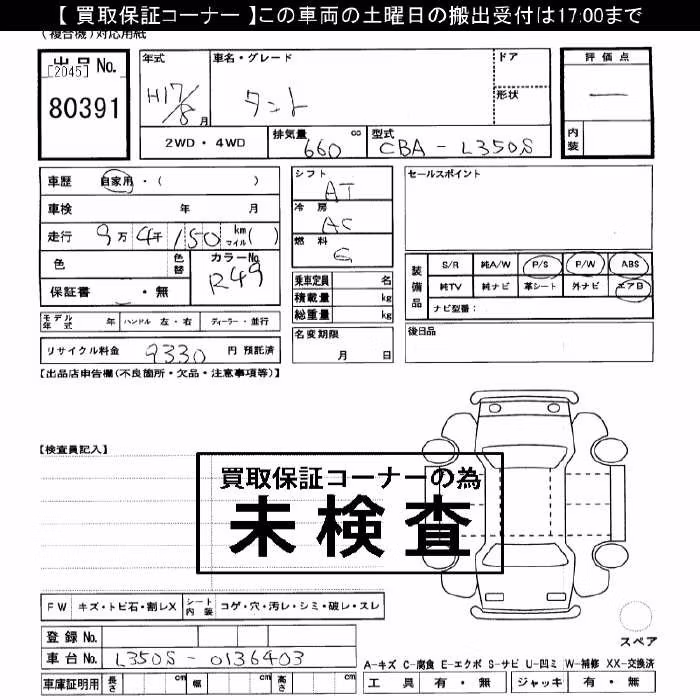 【 買取保証コーナー 】この車両の土曜日の搬出受付は17:00まで
(複合機)対応用紙
出品No.
[2045]
80391
年式 H17/8月
車名・グレード タント
ドア
形状
評価点 —
内装
2WD・4WD
排気量 660 cc
型式 CBA-L350S
車歴 自家用・( )
車検 年 月
走行 9万4千150 km マイル( )
色 色替 カラーNo. R49
保証書 ・無
シフト AT
冷房 AC
燃料 G
セールスポイント
乗車定員 名
積載量 kg
総重量 kg
装備品
S/R 純A/W P/S P/W ABS
純TV 純ナビ 革シート 外ナビ エアB
ナビ型番:
モデル年式 年 ハンドル 左・右 ディーラー・並行
名変期限 月 日
後日品
リサイクル料金 9330 円 預託済
【出品店申告欄(不良箇所・欠品・注意事項等)】
【検査員記入】
買取保証コーナーの為
未検査
FW キズ・トビ石・割レX シート内装 コゲ・穴・汚レ・シミ・破レ・スレ
登録No.
車台No. L350S-0136403
スペア
A-キズ C-腐食 E-エクボ S-サビ U-凹ミ W-補修 XX-交換済
車庫証明用 長さ cm 幅 cm 高さ cm
工具 有・無 ジャッキ 有・無